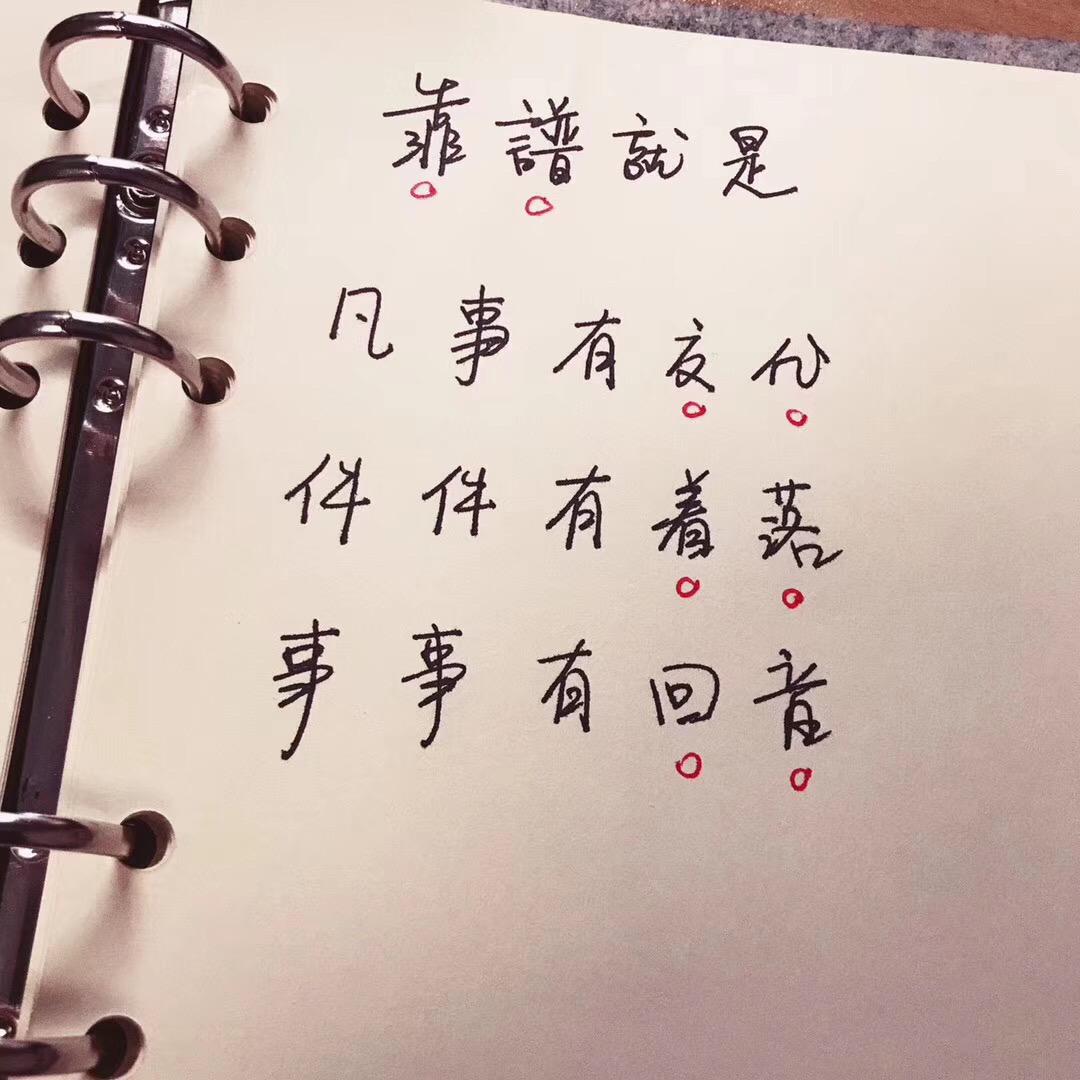 靠譜就是
凡事有交代
件件有着落
事事有回音